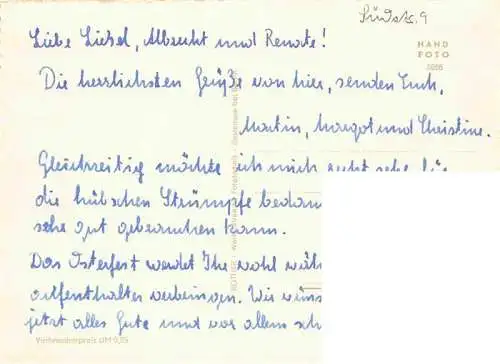 Südstr. 9
Liebe Liesel, Albrecht und Renate!
HAND
FOTO
Die herzlichsten Grüße von hier, senden Euch,
Martin, Margot und Christine.
Gleichzeitig möchte ich mich recht sehr für
die hübschen Strümpfe bedan
sehr gut gebrauchen kann.
Das Osterfest werdet Ihr wohl wäh
aufenthaltes verbringen. Wir wüns
jetzt alles Gute und vor allem sch
Verbraucherpreis DM 0,15